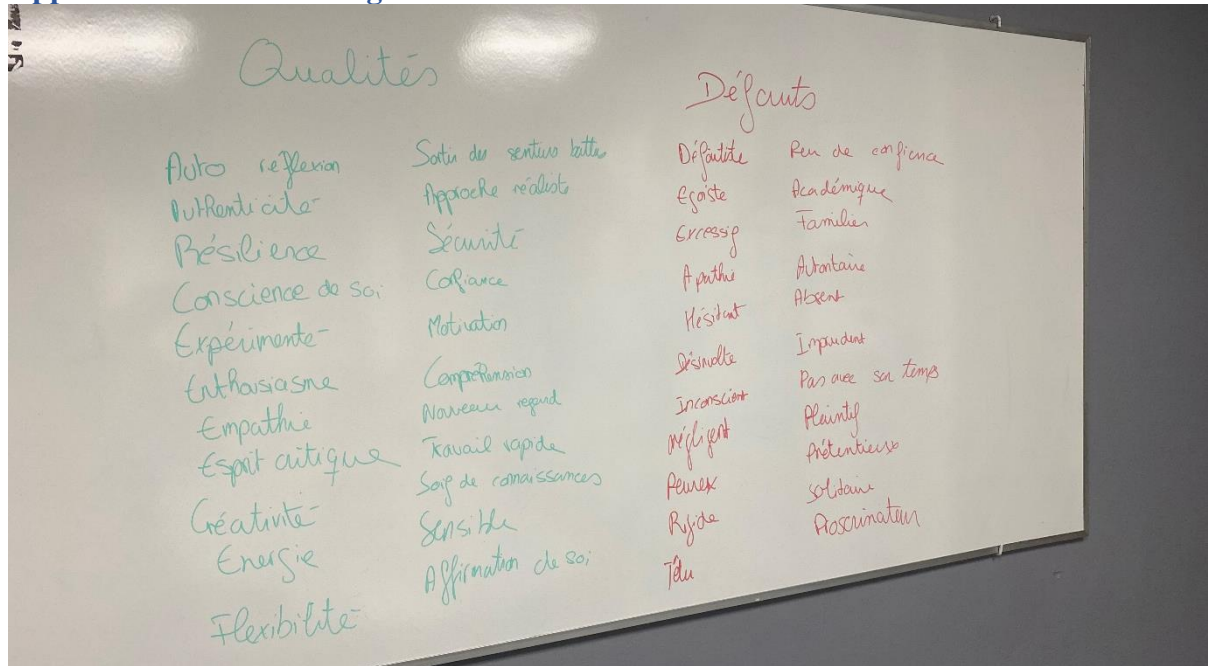 Qualités
Auto reflexion
Authenticité
Résilience
Conscience de soi
Expérimenté
Enthousiasme
Empathie
Esprit critique
Créativité
Energie
Flexibilité
Sortir des sentiers battus
Approche réaliste
Sécurité
Confiance
Motivation
Compréhension
Nouveau regard
Travail rapide
Soif de connaissances
Sensible
Affirmation de soi
Défauts
Défaitiste
Egoïste
Excessif
Apathie
Hésitant
Désinvolte
Inconscient
négligent
Peurex
Rigide
Têtu
Peu de confience
Académique
Familier
Autoritaire
Absent
Imprudent
Pas avec son temps
Plaintif
Prétentieux
solitaire